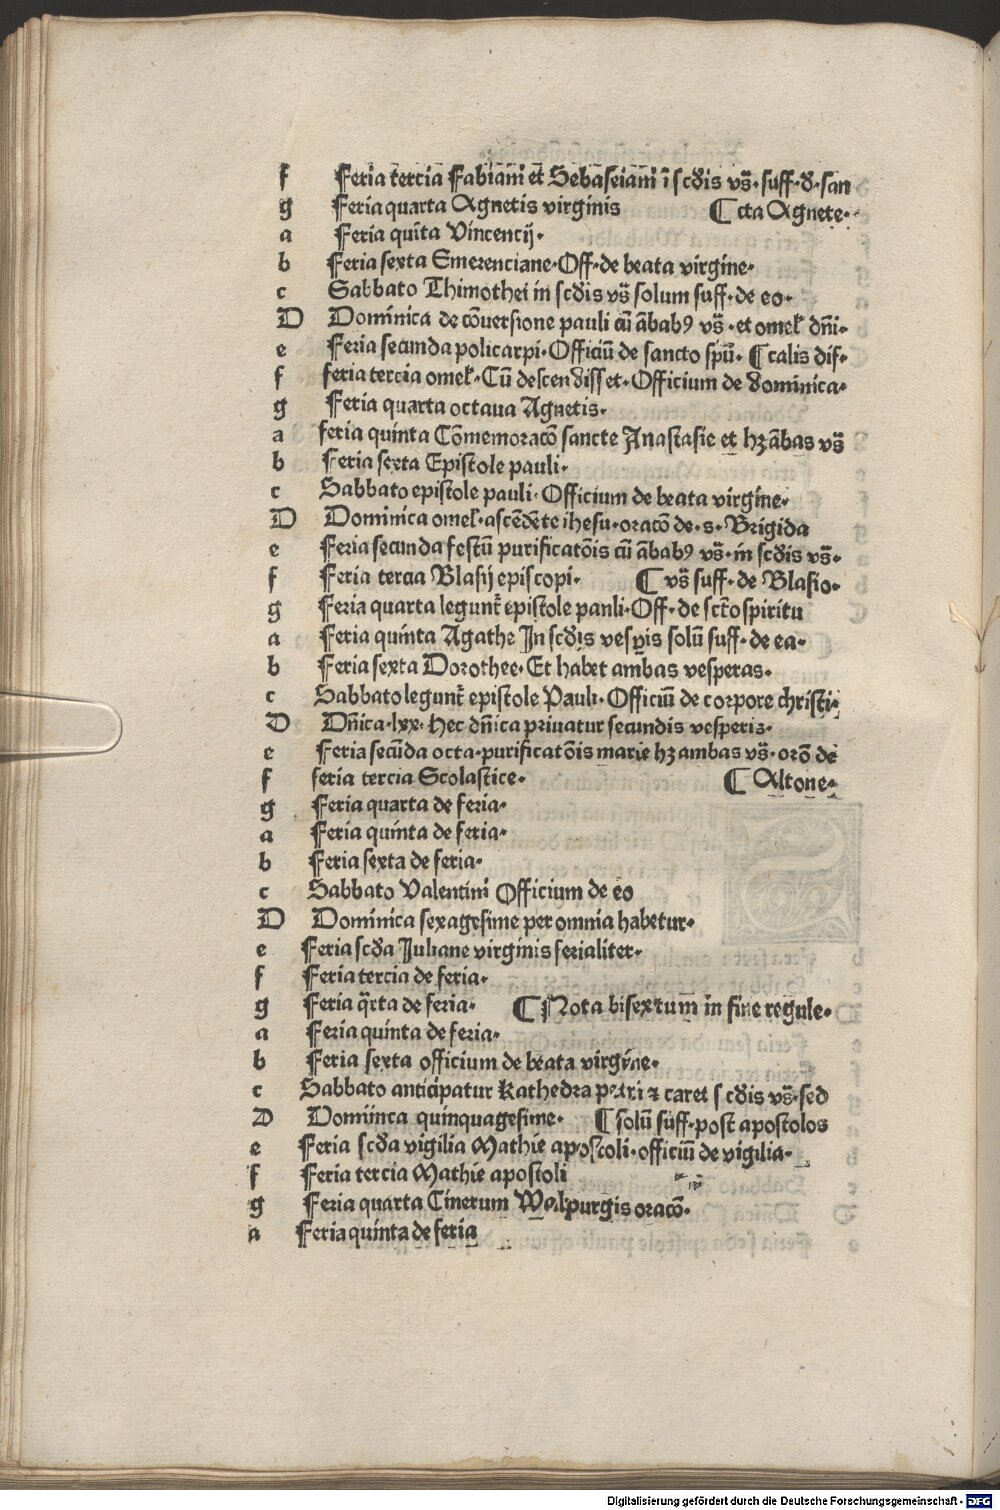 f Feria tercia Fabiani et Sebaseiani ī scd̄is vs̄· suff·d̄·san
g Feria quarta Agnetis virginis ¶ cta Agnete·
a Feria quīta Vincencij·
b Feria sexta Emerenciane· Off· de beata virgine·
c Sabbato Thimothei in scd̄is vs̄ solum suff· de eo·
D Dominica de cōuersione pauli cū ābabꝰ vs̄· et omel̄ dn̄i·
e Feria secunda policarpi· Officiū de sancto spū· ¶ calis dis·
f feria tercia omel̄· Cū descendisset· Officium de dominica·
g Feria quarta octaua Agnetis·
a feria quinta Cōmemoracō sancte Anastasie et hꝫ ābas vs̄
b Feria sexta Epistole pauli·
c Sabbato epistole pauli· Officium de beata virgine·
D Dominica omel̄· ascēdēte ihesu· oracō de· s· Brigida
e Feria secunda festū purificatōis cū ābabꝰ vs̄· in scd̄is vs̄·
f Feria tercia Blasij episcopi· ¶ vs̄ suff· de Blasio·
g Feria quarta legunt̄ epistole panli· Off· de sct̄o spiritu
a Feria quinta Agathe In scd̄is vesp̲is solū suff· de ea·
b Feria sexta Dorothee· Et habet ambas vesperas·
c Sabbato legunt̄ epistole Pauli· Officiū de corpore christi·
D Dn̄ica· lxx· Hec dn̄ica priuatur secundis vesperis·
e Feria secūda octa· purificatōis marie hꝫ ambas vs̄· orō de
f feria tercia Scolastice· ¶ Altone·
g Feria quarta de feria·
a Feria quinta de feria·
b Feria sexta de feria·
c Sabbato Valentini Officium de eo
D Dominica sexagesime per omnia habetur·
e Feria scd̄a Juliane virginis ferialiter·
f Feria tercia de feria·
g Feria q̄rta de feria· ¶ Nota bisextum in fine regule·
a Feria quinta de feria·
b Feria sexta officium de beata virgine·
c Sabbato anticipatur Kathedra petri ⁊ caret scd̄is vs̄· sed
D Dominca quinquagesime· ¶ solū suff· post apostolos
e Feria scd̄a vigilia Mathie apostoli· officiū de vigilia·
f Feria tercia Mathie apostoli
g Feria quarta Cinerum Walpurgis oracō·
a Feria quinta de feria
Digitalisierung gefördert durch die Deutsche Forschungsgemeinschaft - DFG